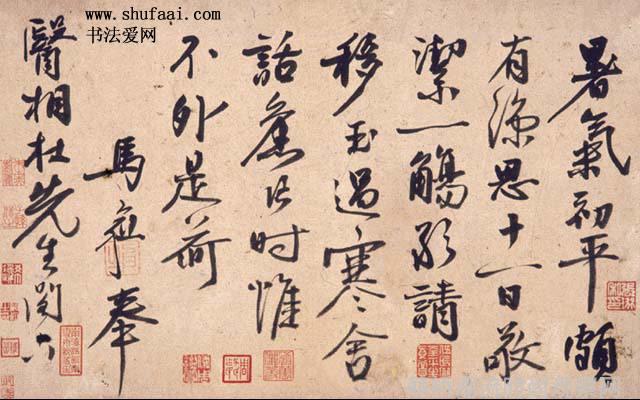 www.shufaai.com
书法爱网
暑氣初平頗
有涼思十一日敬
潔一觴請
移玉過寒舍
話舊片时惟
不外是荷
馬愈奉
醫相杜先生閣下